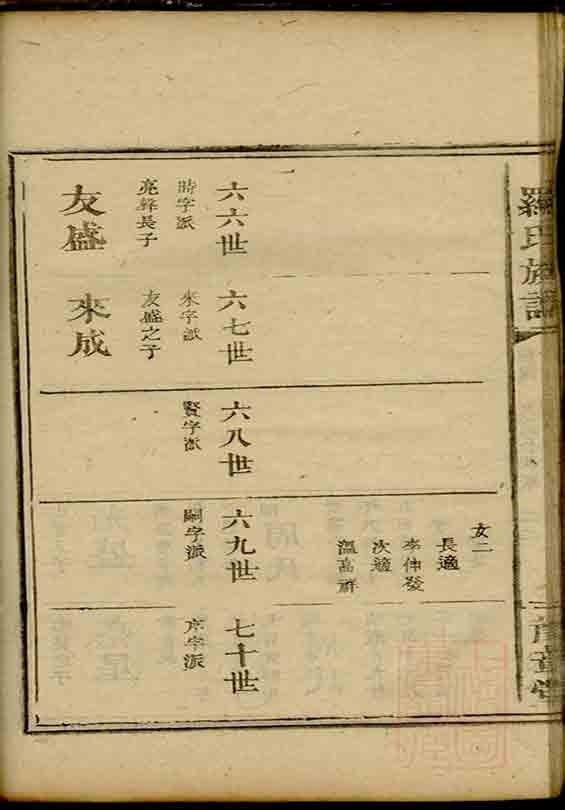 羅氏族譜
女二
長適
李仲發
次適
溫高群
六六世
時字派
亮鋒長子
友盛
六七世
來字派
友盛之子
來成
六八世
賢字派
六九世
嗣字派
七十世
序字派